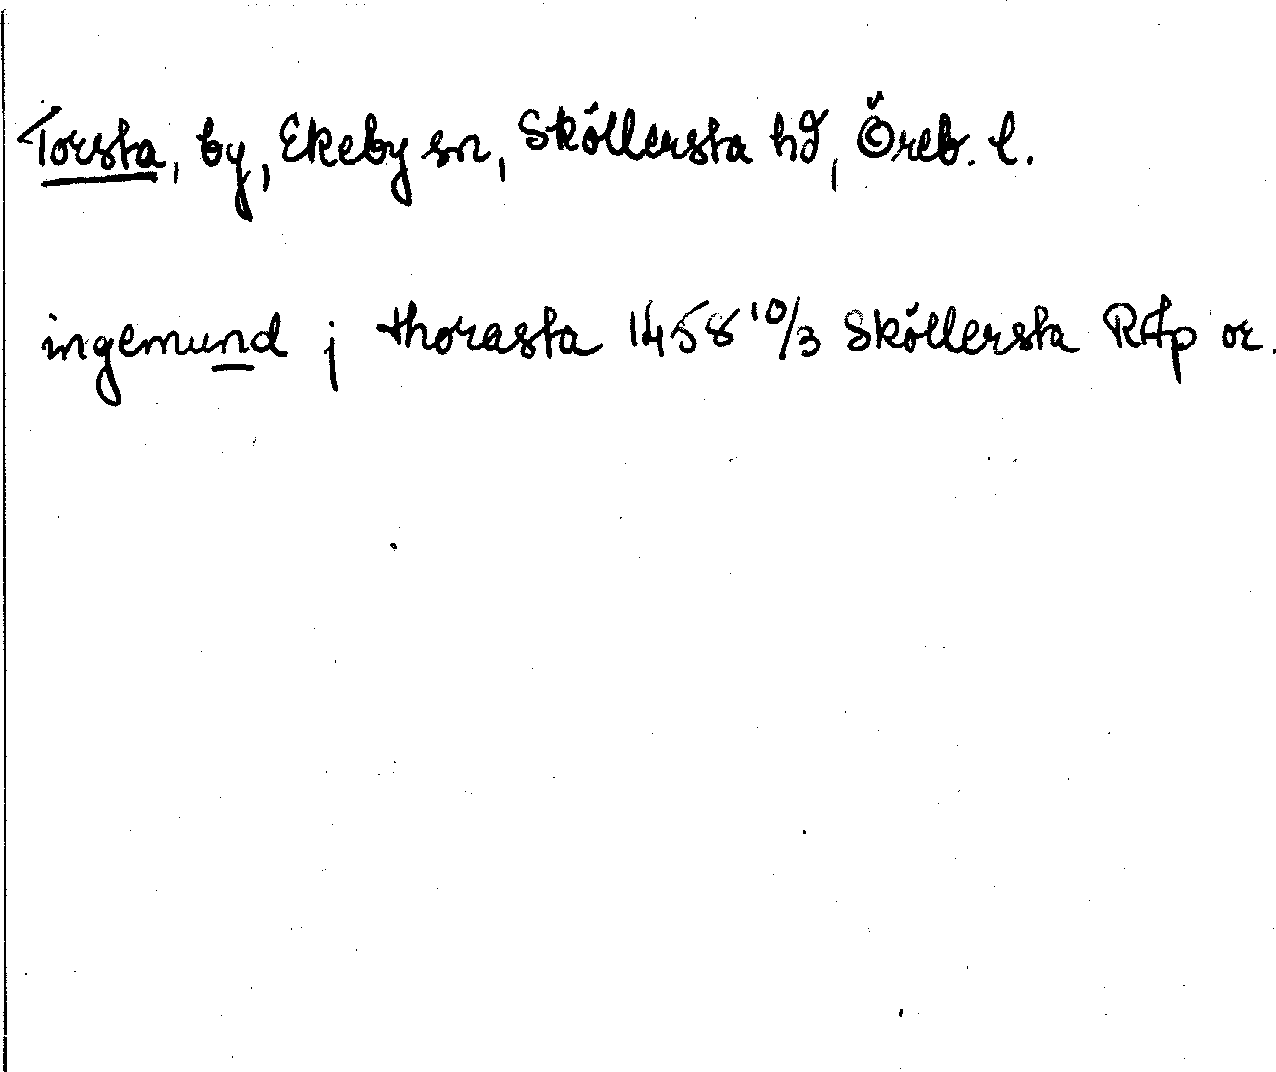 Torsta, by, Ekeby sn, Sköllersta hd, Öreb. l.
ingemund j thorasta 1458 10/3 Sköllersta RAp or.